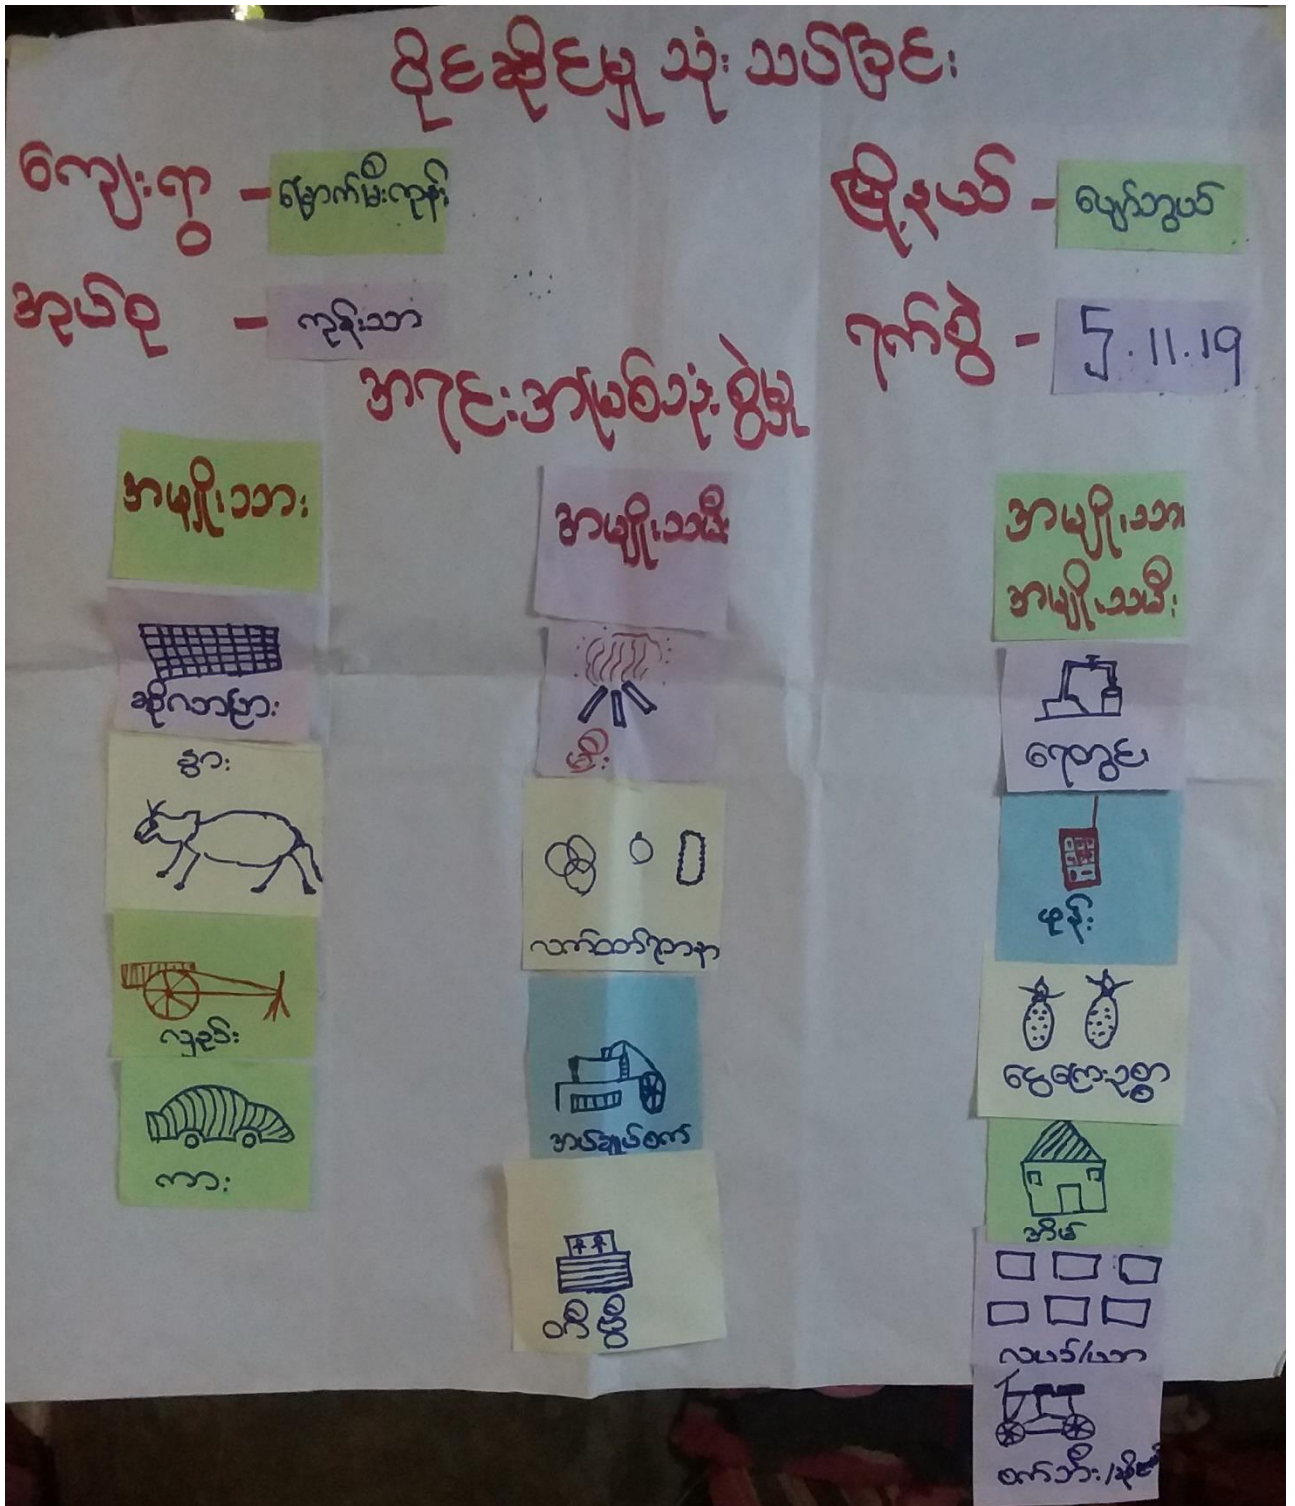 ပိုင်ဆိုင်မှု သုံး သပ်ခြင်း
ကျေးရွာ - မြောက်မီးကုန်း
မြို့နယ် - ပျော်ဘွယ်
အုပ်စု - ကုန်းသာ
ရက်စွဲ - 5.11.19
အရင်းအမြစ်သုံးစွဲမှု
အမျိုးသား
ဆိုလာပြား
နွား
လှည်း
ကား
အမျိုးသမီး
မီး
လက်ဝတ်ရတနာ
အပ်ချုပ်စက်
တီဗွီ
အမျိုးသား
အမျိုးသမီး
ရေတွင်း
ဖုန်း
ငွေကြေးဥစ္စာ
အိမ်
လယ်/ယာ
စက်ဘီး/ဆိုင်ကယ်